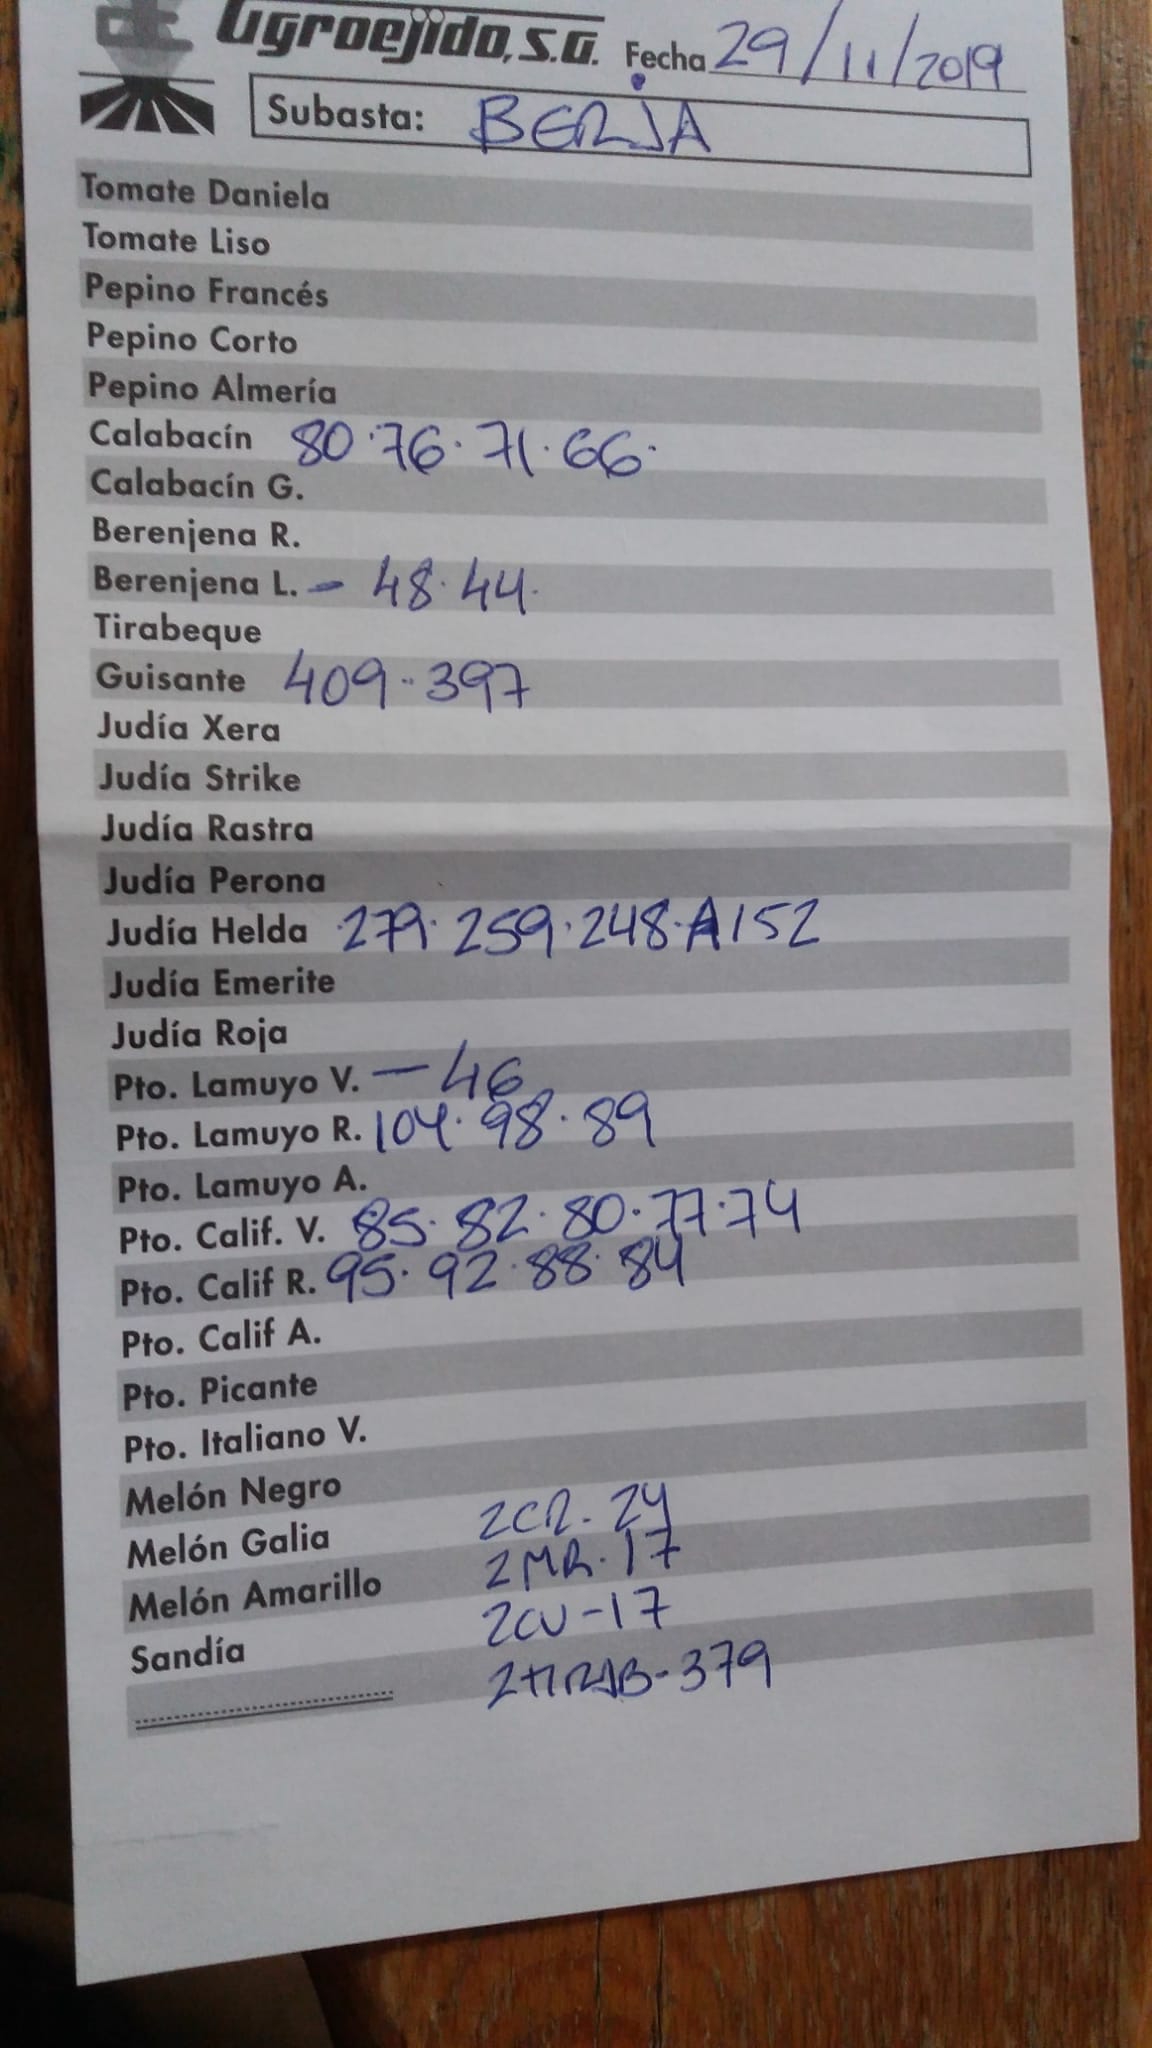 Agroejido, S.A. Fecha 29/11/2019
Subasta: BERJA
Tomate Daniela
Tomate Liso
Pepino Francés
Pepino Corto
Pepino Almería
Calabacín 80·76·71·66·
Calabacín G.
Berenjena R.
Berenjena L. - 48·44·
Tirabeque
Guisante 409·397
Judía Xera
Judía Strike
Judía Rastra
Judía Perona
Judía Helda 279·259·248·A152
Judía Emerite
Judía Roja
Pto. Lamuyo V. - 46
Pto. Lamuyo R. 104·98·89
Pto. Lamuyo A.
Pto. Calif. V. 85·82·80·77·74
Pto. Calif R. 95·92·88·84
Pto. Calif A.
Pto. Picante
Pto. Italiano V.
Melón Negro
Melón Galia 2CR. 24
Melón Amarillo 2MR. 17
Sandía 2CV-17
2TIRAB-379